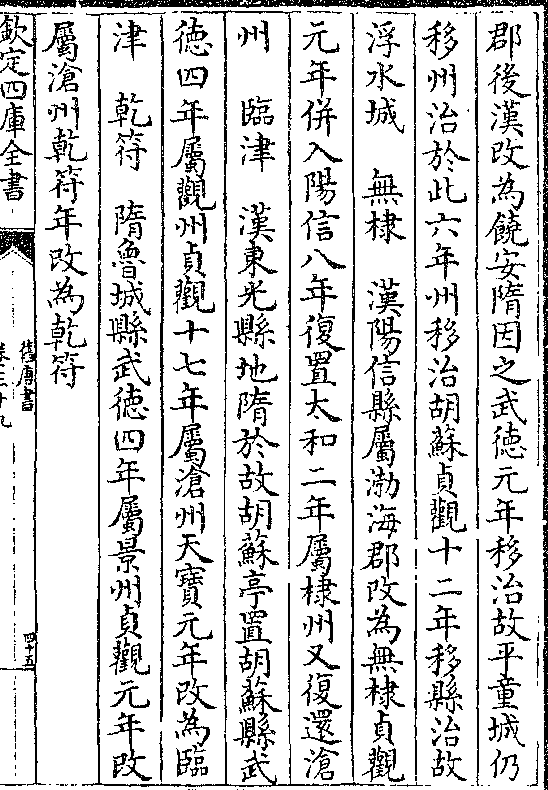 郡後漢改為饒安隋因之武徳元年移治故平童城仍
移州治於此六年州移治胡蘇貞觀十二年移縣治故
浮水城　無棣　漢陽信縣屬渤海郡改為無棣貞觀
元年併入陽信八年復置太和二年屬棣州又復還滄
州　臨津　漢東光縣地隋於故胡蘇亭置胡蘇縣武
徳四年屬觀州貞觀十七年屬滄州天寳元年改為臨
津　乾符　隋魯城縣武徳四年屬景州貞觀元年改
屬滄州乾符年改為乾符
欽定四庫全書
舊唐書
卷三十九
四十五